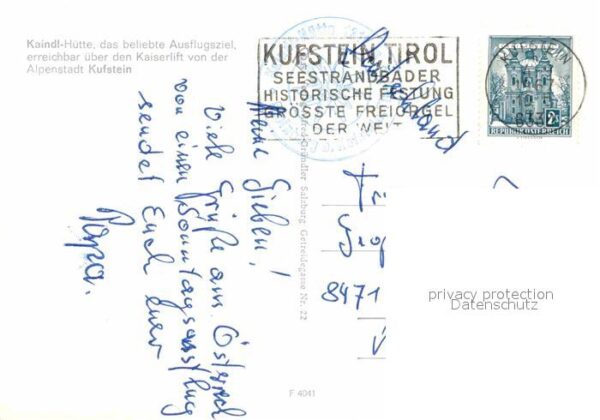 Kaindl-Hütte, das beliebte Ausflugsziel,
erreichbar über den Kaiserlift von der
Alpenstadt Kufstein
KUFSTEIN, TIROL
SEESTRANDBÄDER
HISTORISCHE FESTUNG
GRÖSSTE FREIORGEL
DER WELT
KUFSTEIN
REPUBLIK ÖSTERREICH
Meine Lieben!
Viele Grüße aus Österreich
von einem Sonntagsausflug
sendet Euch Euer
Papa.
Salzburg Getreidegasse Nr. 22
8471
privacy protection
Datenschutz
F 4041